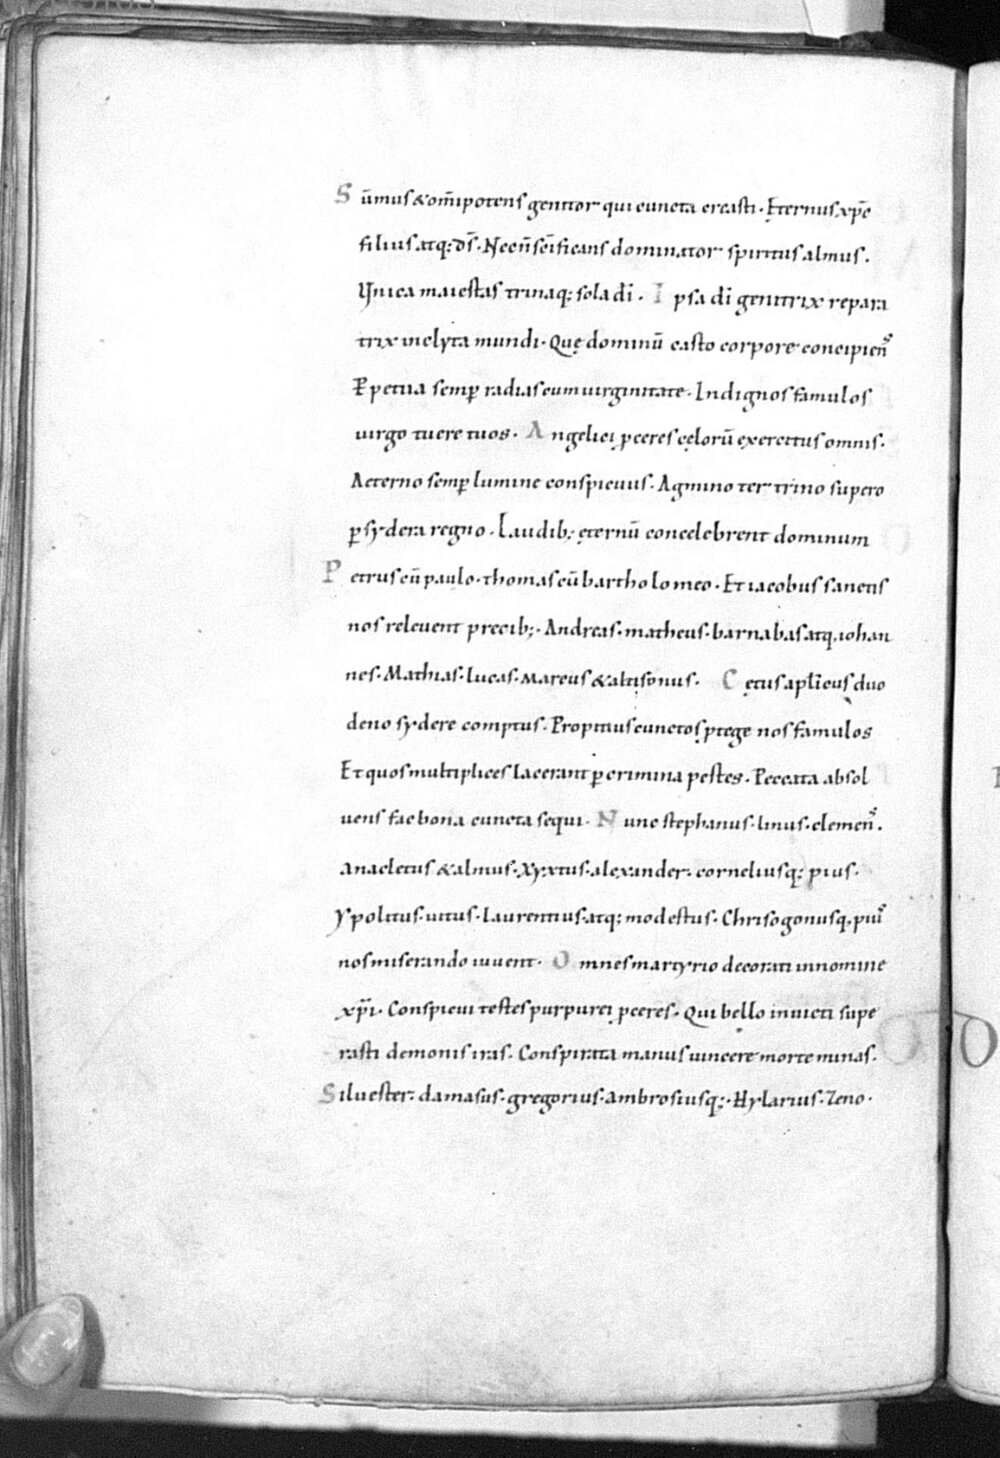 Sūmus & om̄ipotens genitor qui cuncta creasti. Eternus xp̄e
filius atq; ds̄. Necn̄ sc̄ificans dominator spiritus almus.
Unica maiestas trinaq; sola dī. Ipsa dī genitrix repara
trix inclyta mundi. Quę dominū casto corpore concipiens
Ꝑpetua semꝑ radias cum uirginitate. Indignos famulos
uirgo tuere tuos. Angelici ꝓceres cęlorū exercitus omnis.
Aeterno semꝑ lumine conspicuus. Agmino ter trino supero
ꝑ sydera regno. Laudib; ęternū concelebrent dominum
Petrus cū paulo. thomas cū bartholomeo. Et iacobus sanctis
nos releuent precib;. Andreas. matheus. barnabas atq, iohan
nes. Mathias. lucas. marcus & altisonus. Cętus apl̄icus duo
deno sydere comptus. Propitius cunctos ꝓtege nos famulos
Et quos multiplices lacerant ꝑ crimina pestes. Peccata absol
uens fac bona cuncta sequi. Nunc stephanus. linus. clemens.
Anacletus & almus. Xyxtus. alexander. corneliusq; pius.
Ypolitus. uitus. laurentius. atq; modestus. Chrisogonusq, pius
nos miserando iuuent. Omnes martyrio decorati in nomine
xp̄i. Conspicui testes purpurei ꝓceres. Qui bello inuicti supe
rasti demonis iras. Conspirata manus uincere morte minas.
Siluester. damasus. gregorius. ambrosiusq;. Hylarius. Zeno.